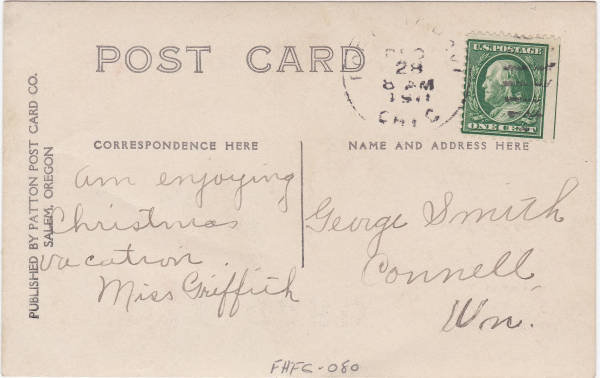 POST CARD
DEC
28
8 AM
1911
U.S. POSTAGE
ONE CENT
PUBLISHED BY PATTON POST CARD CO.
SALEM, OREGON
CORRESPONDENCE HERE
am enjoying
Christmas
vacation.
Miss Griffith
NAME AND ADDRESS HERE
George Smith
Connell,
Wn.
FHFC-080